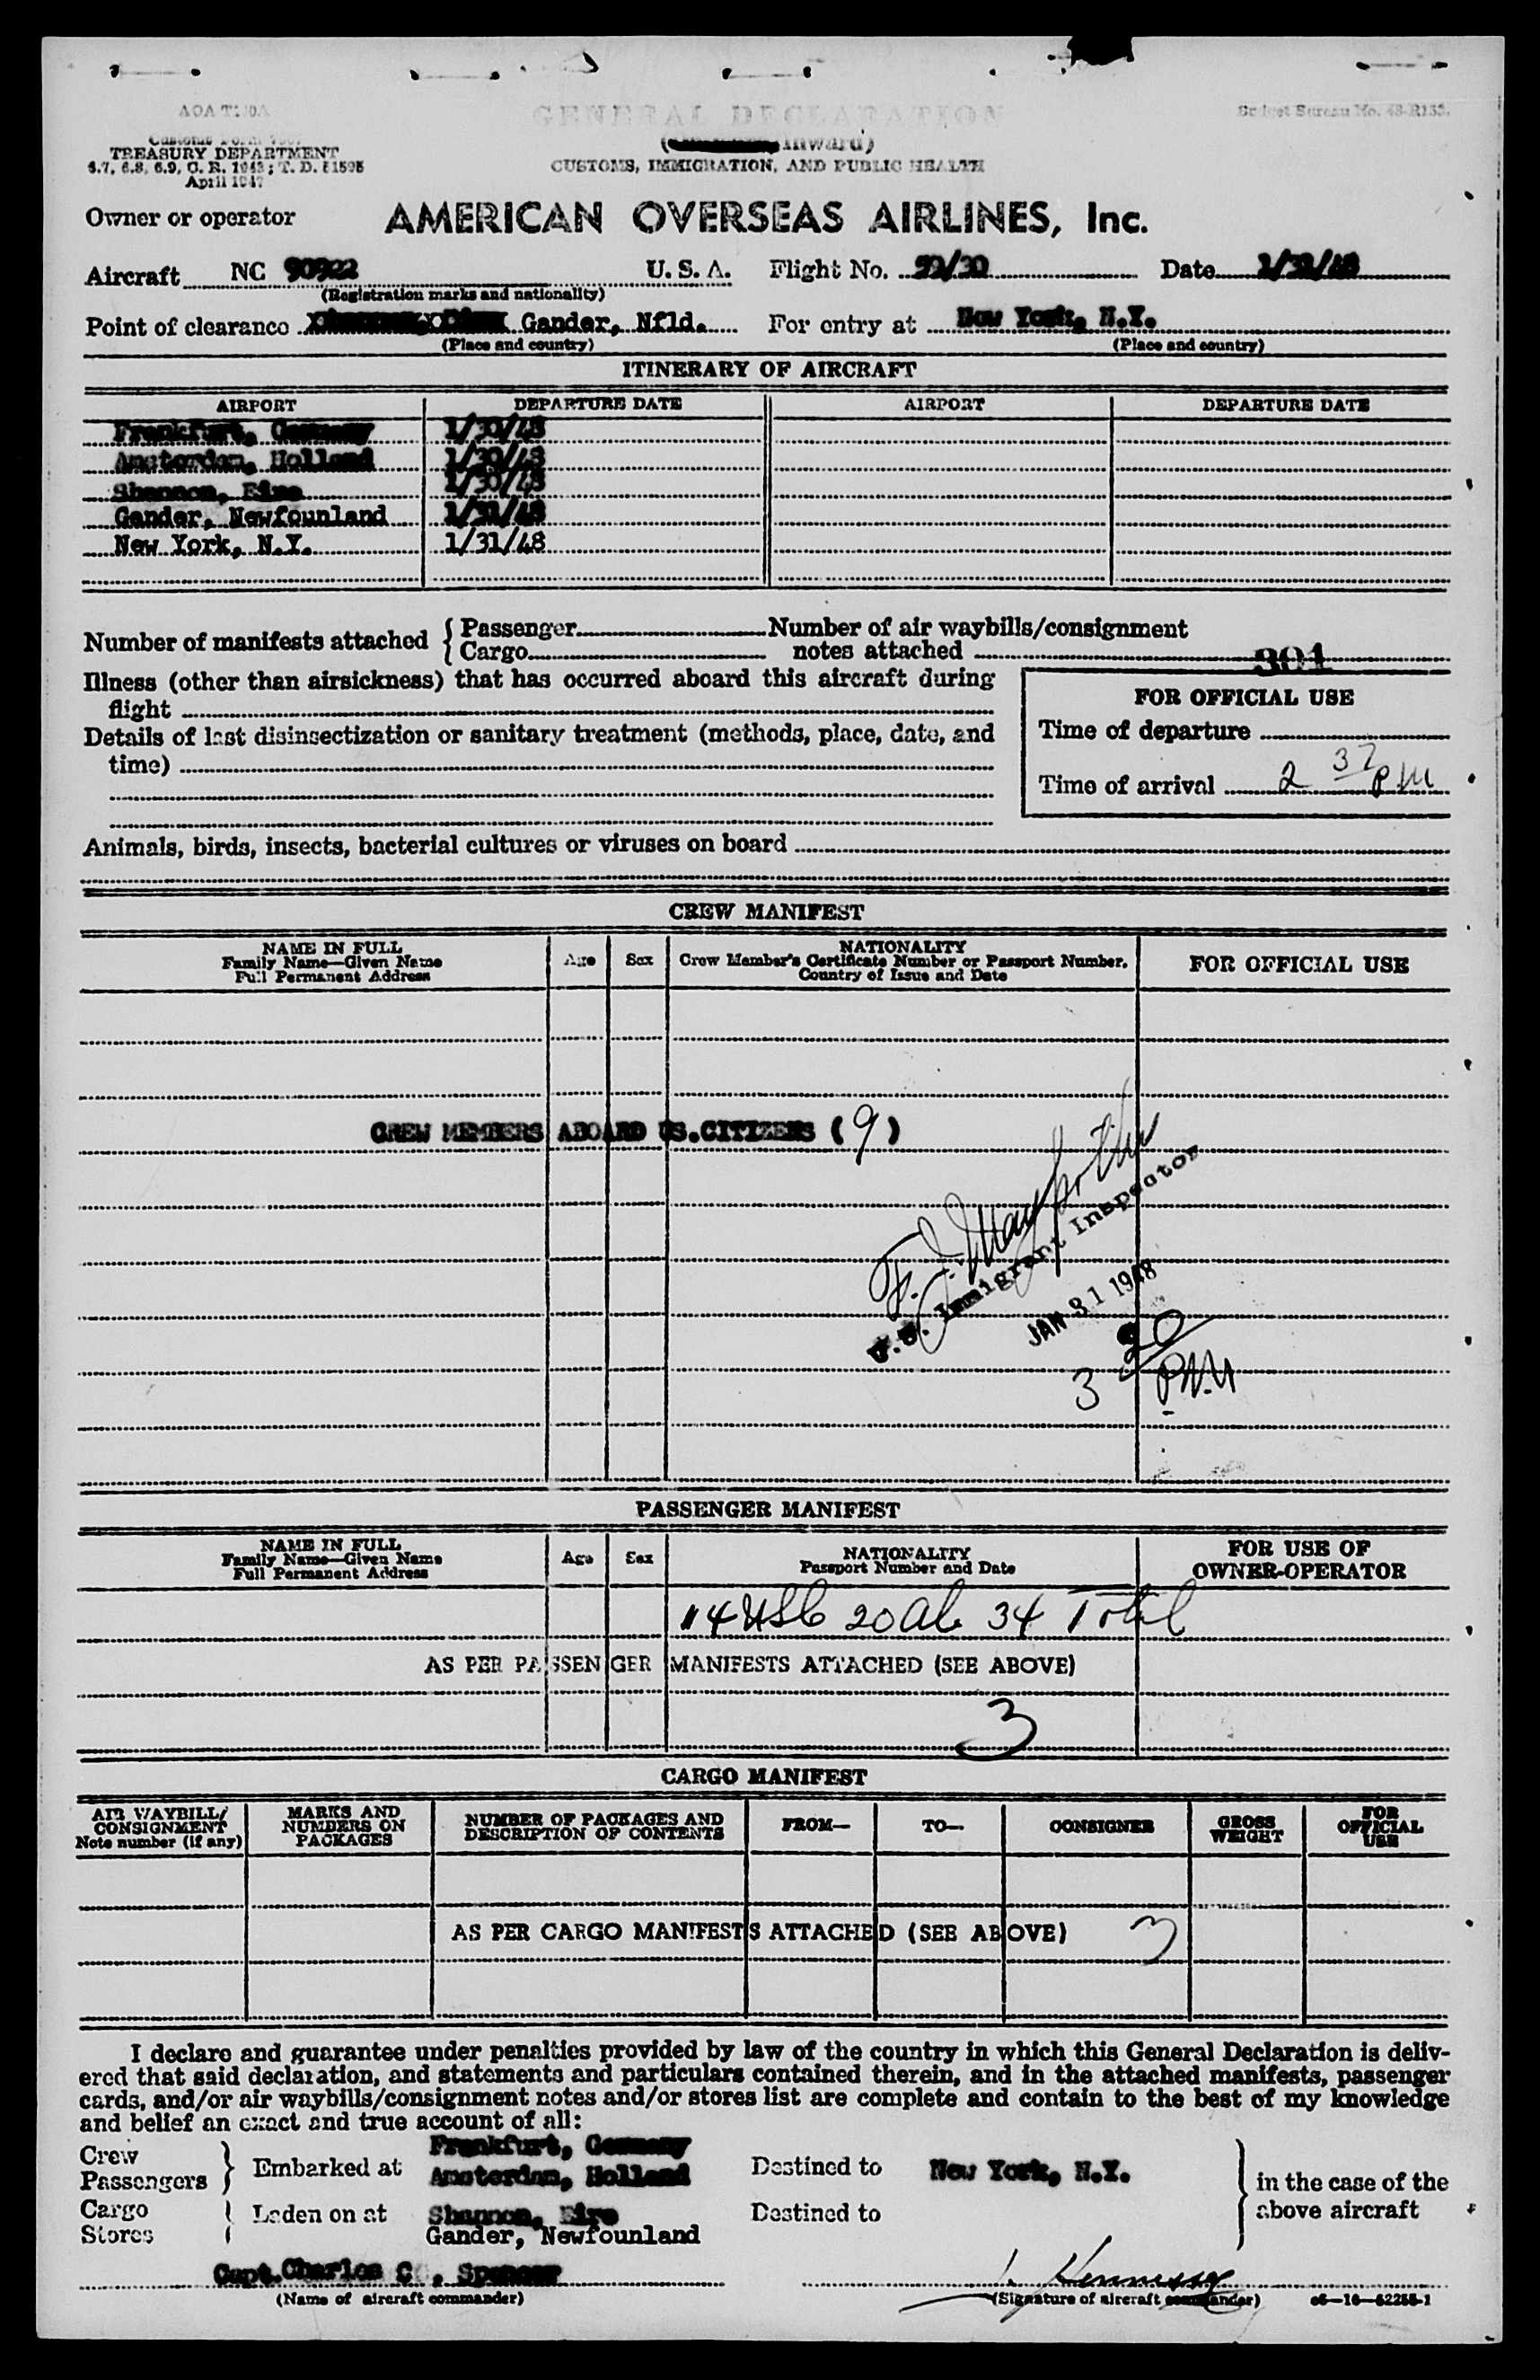 GENERAL DECLARATION
Budget Bureau No. 48-R133.
Customs Form
(Inward)
TREASURY DEPARTMENT
6.7, 6.8, 6.9, C. R. 1943; T. D. 51595
April 1947
CUSTOMS, IMMIGRATION, AND PUBLIC HEALTH
Owner or operator AMERICAN OVERSEAS AIRLINES, Inc.
Aircraft NC 90922 U. S. A. Flight No. /30 Date 1/31/48
(Registration marks and nationality)
Point of clearance Gander, Nfld. For entry at New York, N.Y.
(Place and country) (Place and country)
ITINERARY OF AIRCRAFT
AIRPORT DEPARTURE DATE AIRPORT DEPARTURE DATE
Frankfurt, Germany 1/30/48
Amsterdam, Holland 1/30/48
Shannon, Eire 1/30/48
Gander, Newfounland 1/31/48
New York, N.Y. 1/31/48
Number of manifests attached { Passenger Number of air waybills/consignment
{ Cargo notes attached
301
Illness (other than airsickness) that has occurred aboard this aircraft during
flight
FOR OFFICIAL USE
Details of last disinsectization or sanitary treatment (methods, place, date, and
time)
Time of departure
Time of arrival 2 37 PM
Animals, birds, insects, bacterial cultures or viruses on board
CREW MANIFEST
NAME IN FULL
Family Name—Given Name
Full Permanent Address
Age Sex
NATIONALITY
Crew Member's Certificate Number or Passport Number,
Country of Issue and Date
FOR OFFICIAL USE
CREW MEMBERS ABOARD US.CITIZENS (9)
U.S. Immigrant Inspector
JAN 31 1948
3 20 PM
PASSENGER MANIFEST
NAME IN FULL
Family Name—Given Name
Full Permanent Address
Age Sex
NATIONALITY
Passport Number and Date
FOR USE OF
OWNER-OPERATOR
14 USC 20 Al 34 Total
AS PER PASSENGER MANIFESTS ATTACHED (SEE ABOVE)
3
CARGO MANIFEST
AIR WAYBILL/
CONSIGNMENT
Note number (if any)
MARKS AND
NUMBERS ON
PACKAGES
NUMBER OF PACKAGES AND
DESCRIPTION OF CONTENTS
FROM—
TO—
CONSIGNEE
GROSS
WEIGHT
FOR
OFFICIAL
USE
AS PER CARGO MANIFESTS ATTACHED (SEE ABOVE) 3
I declare and guarantee under penalties provided by law of the country in which this General Declaration is deliv-
ered that said declaration, and statements and particulars contained therein, and in the attached manifests, passenger
cards, and/or air waybills/consignment notes and/or stores list are complete and contain to the best of my knowledge
and belief an exact and true account of all:
Crew
Passengers } Embarked at Frankfurt, Germany
Amsterdam, Holland Destined to New York, N.Y. } in the case of the
Cargo
Stores } Laden on at Shannon, Eire Destined to above aircraft
Gander, Newfounland
Capt. Charles C., Spencer Hennessy
(Name of aircraft commander) (Signature of aircraft commander) c6—16—52255-1